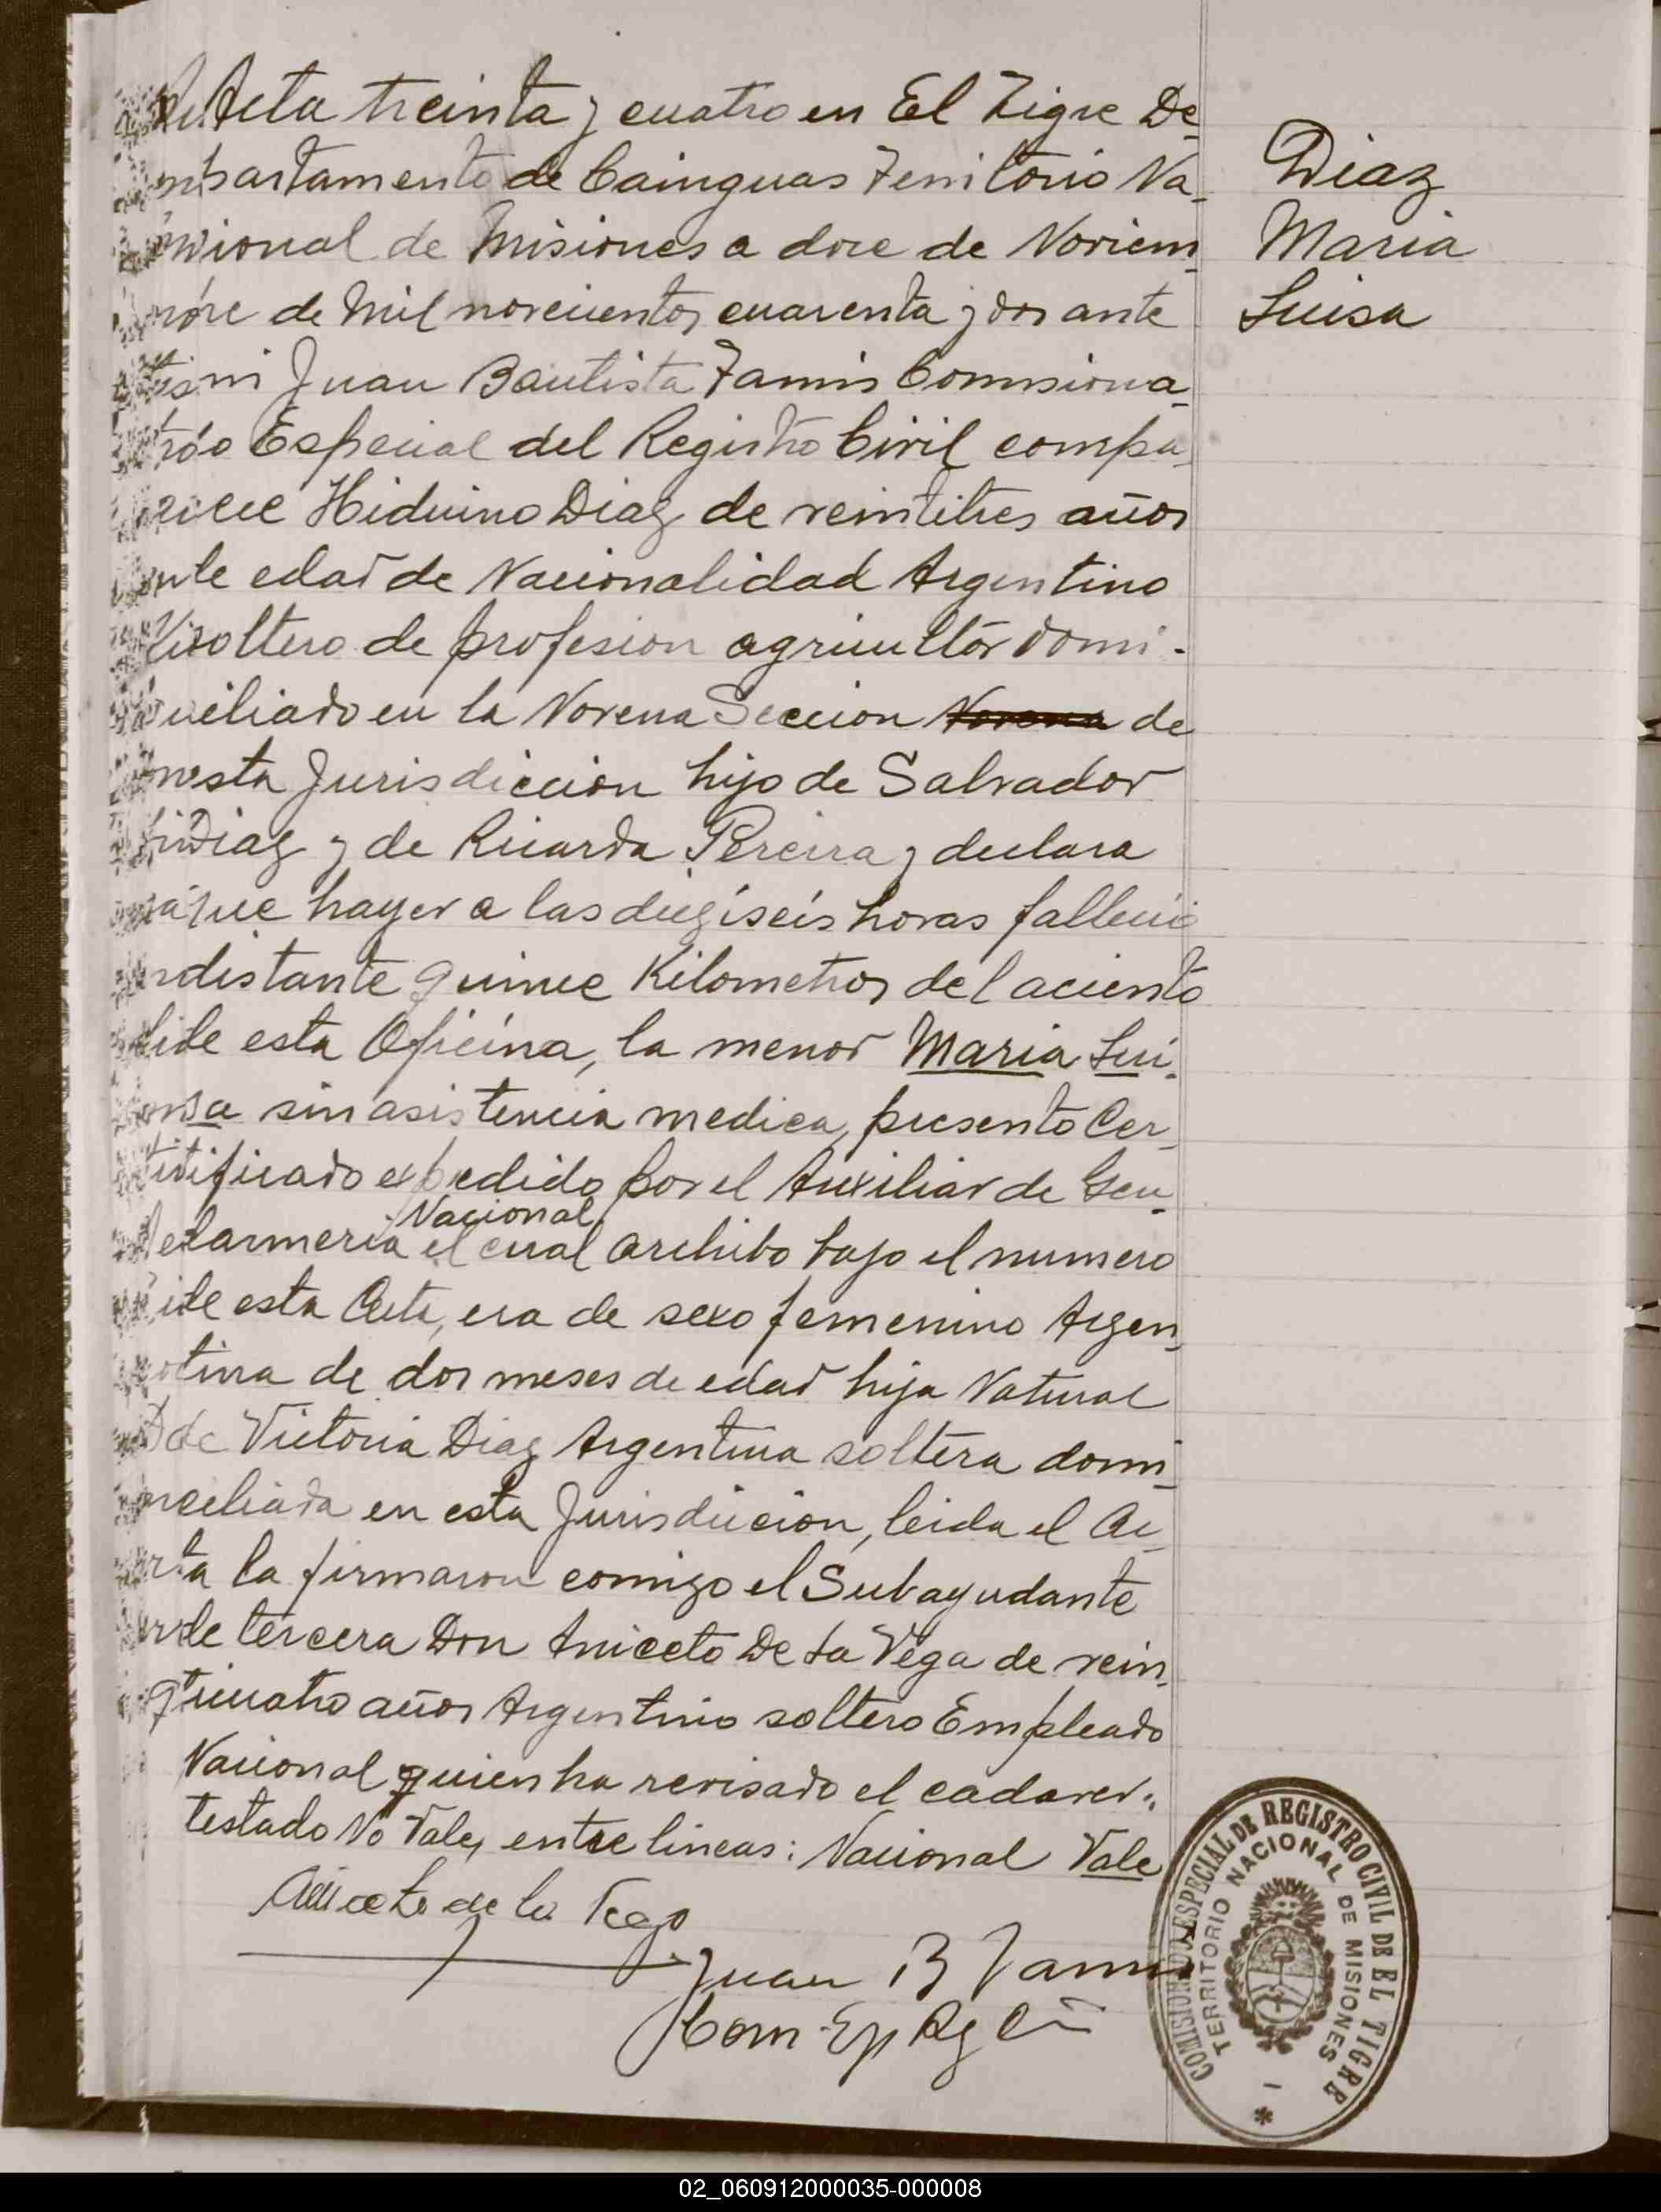 Acta treinta y cuatro en El Tigre De-
partamento de Cainguas Territorio Na-
cional de Misiones a doce de Noviem-
bre de Mil novecientos cuarenta y dos ante
mi Juan Bautista Comisiona-
do Especial del Registro Civil compa-
rece Hiduino Diaz de veintitres años
de edad de Nacionalidad Argentino
soltero de profesion agricultor domi-
ciliado en la Novena Seccion Novena de
esta Jurisdiccion hijo de Salvador
Diaz y de Ricarda Pereira y declara
que hayer a las dieziseis horas fallecio
distante quince Kilometros del aciento
de esta Oficina, la menor Maria Lui-
sa sin asistencia medica, presento Cer-
tificado expedido por el Auxiliar de Gen-
Nacional
darmeria el cual archibo bajo el numero
de esta Acta, era de sexo femenino Argen-
tina de dos meses de edad hija Natural
de Victoria Diaz Argentina soltera domi-
ciliada en esta Jurisdiccion, leida el Ac-
ta la firmaron comigo el Subayudante
de tercera Don Aniceto De La Vega de vein-
ticuatro años Argentino soltero Empleado
Nacional quien ha revisado el cadaver.
testado No Vale, entre lineas: Nacional Vale
Aniceto de la Vega
Juan B
Com Esp Rg Ci
Diaz
Maria
Luisa
COMISIONADO ESPECIAL DE REGISTRO CIVIL DE EL TIGRE
TERRITORIO NACIONAL DE MISIONES
02_060912000035-000008